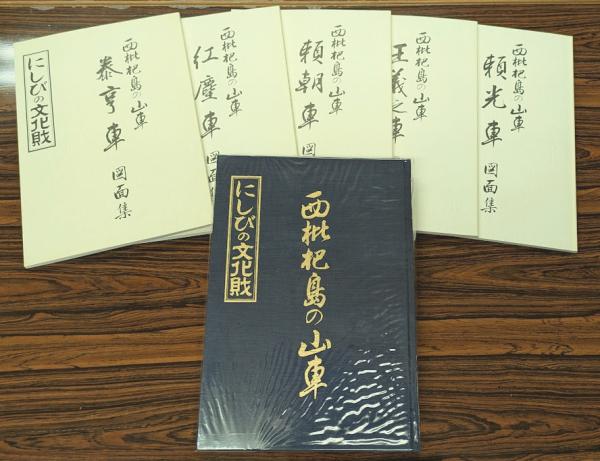 西枇杷島の山車
泰亨車 図面集
にしびの文化財
西枇杷島の山車
紅塵車 図面集
西枇杷島の山車
頼朝車 図面集
西枇杷島の山車
王羲之車
西枇杷島の山車
頼光車 図面集
西枇杷島の山車
にしびの文化財